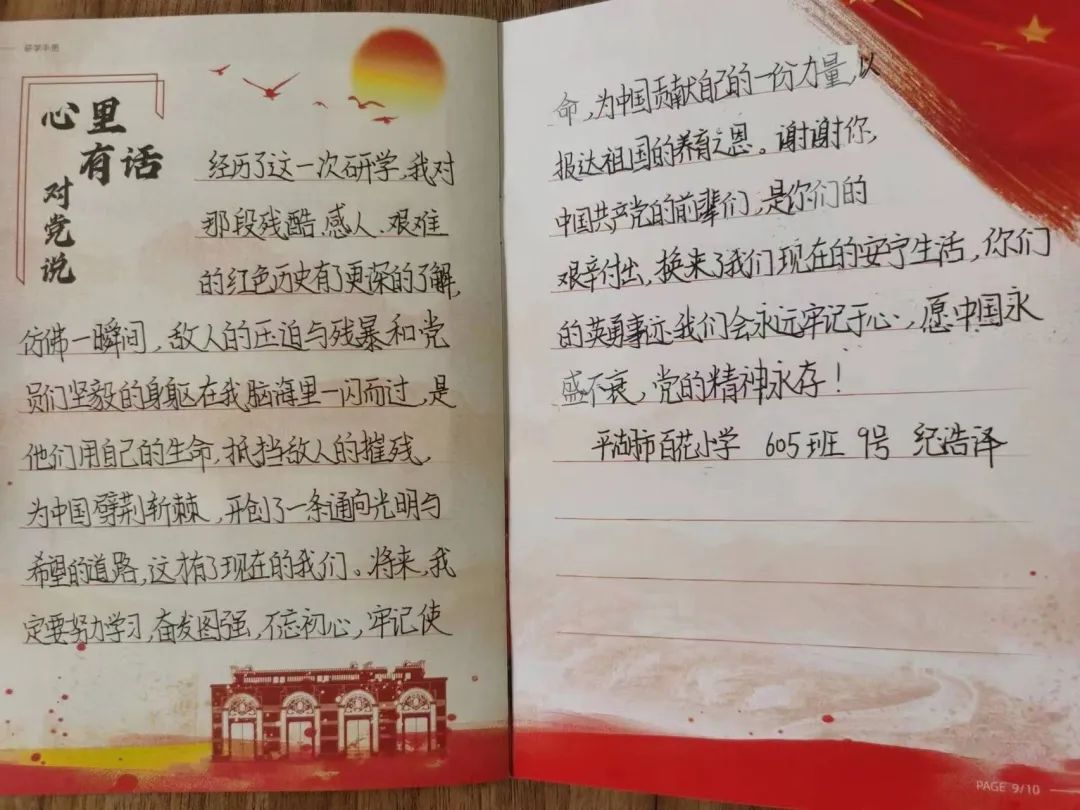 研学手册
心里
有话
对党说
经历了这一次研学,我对
那段残酷、感人、艰难
的红色历史有了更深的了解,
仿佛一瞬间,敌人的压迫与残暴和党
员们坚毅的身躯在我脑海里一闪而过,是
他们用自己的生命,抵挡敌人的摧残,
为中国劈荆斩棘,开创了一条通向光明与
希望的道路,这才有了现在的我们。将来,我
定要努力学习,奋发图强,不忘初心,牢记使
命,为中国贡献自己的一份力量,以
报达祖国的养育之恩。谢谢你,
中国共产党的前辈们,是你们的
艰辛付出,换来了我们现在的安宁生活,你们
的英勇事迹我们会永远牢记于心,愿中国永
盛不衰,党的精神永存!
平湖师百花小学 605班 9号 纪浩泽
PAGE 9/10